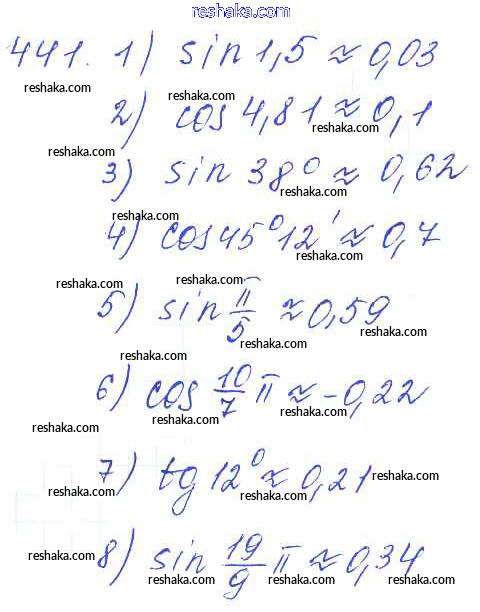 reshaka.com
441. 1) sin 1,5 ≈ 0,03
reshaka.com reshaka.com
reshaka.com
2) cos 4,81 ≈ 0,1
reshaka.com
reshaka.com
3) sin 38° ≈ 0,62
reshaka.com
reshaka.com
4) cos 45°12' ≈ 0,7
reshaka.com reshaka.com
5) sin π/5 ≈ 0,59
reshaka.com
reshaka.com
reshaka.com
6) cos 10/7 π ≈ -0,22
reshaka.com
reshaka.com
7) tg 12° ≈ 0,21
reshaka.com
reshaka.com reshaka.com
8) sin 19/9 π ≈ 0,34
reshaka.com reshaka.com
reshaka.com reshaka.com